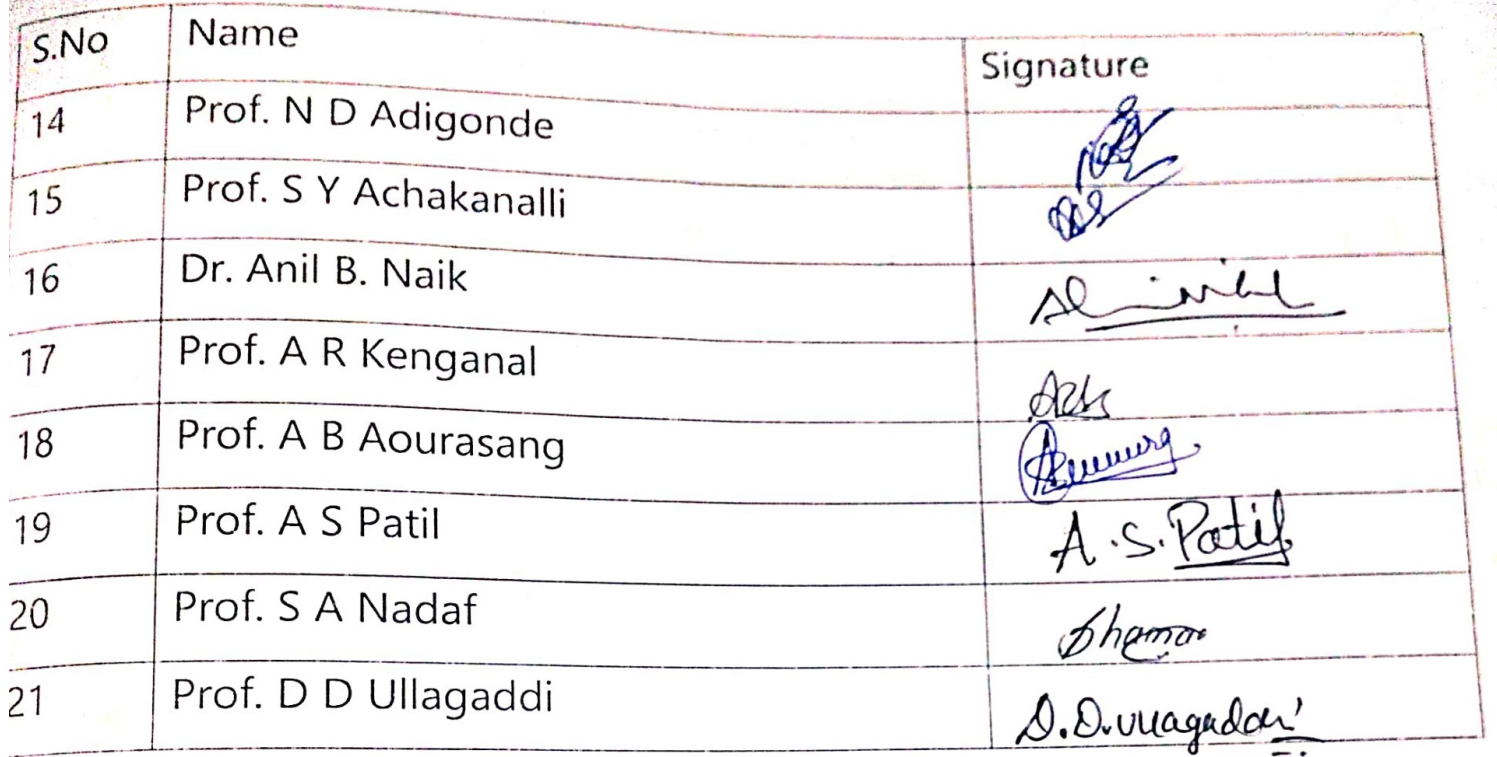 S.No Name Signature
14 Prof. N D Adigonde
15 Prof. S Y Achakanalli
16 Dr. Anil B. Naik
17 Prof. A R Kenganal
18 Prof. A B Aourasang
19 Prof. A S Patil A.S.Patil
20 Prof. S A Nadaf
21 Prof. D D Ullagaddi D.D.Ullagaddi